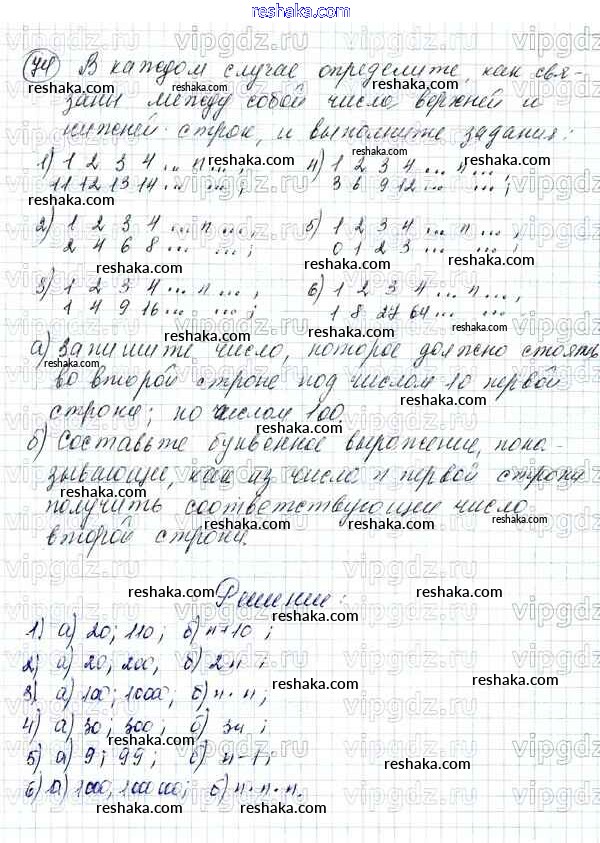 reshaka.com
74) В каждом случае определите, как свя-
заны между собой числа верхней и
нижней строк, и выполните задания:
1) 1 2 3 4 ... n ...
11 12 13 14 ... ...;
4) 1 2 3 4 ... n ...
3 6 9 12 ... ...;
2) 1 2 3 4 ... n ...
2 4 6 8 ... ...;
5) 1 2 3 4 ... n ...
0 1 2 3 ... ...;
3) 1 2 3 4 ... n ...,
1 4 9 16 ... ...;
6) 1 2 3 4 ... n ...,
1 8 27 64 ... ...;
а) Запишите число, которое должно стоять
во второй строке под числом 10 первой
строки; по числом 100.
б) Составьте буквенное выражение, пока-
зывающи, как из числа n первой строки
получить соответствующии число
второй строки.
Решение:
1) а) 20; 110; б) n+10;
2) а) 20, 200, б) 2n;
3) а) 100; 1000, б) n·n;
4) а) 30; 300; б) 3n;
5) а) 9; 99; б) n-1;
6) а) 1000, 100000; б) n·n·n.
reshaka.com